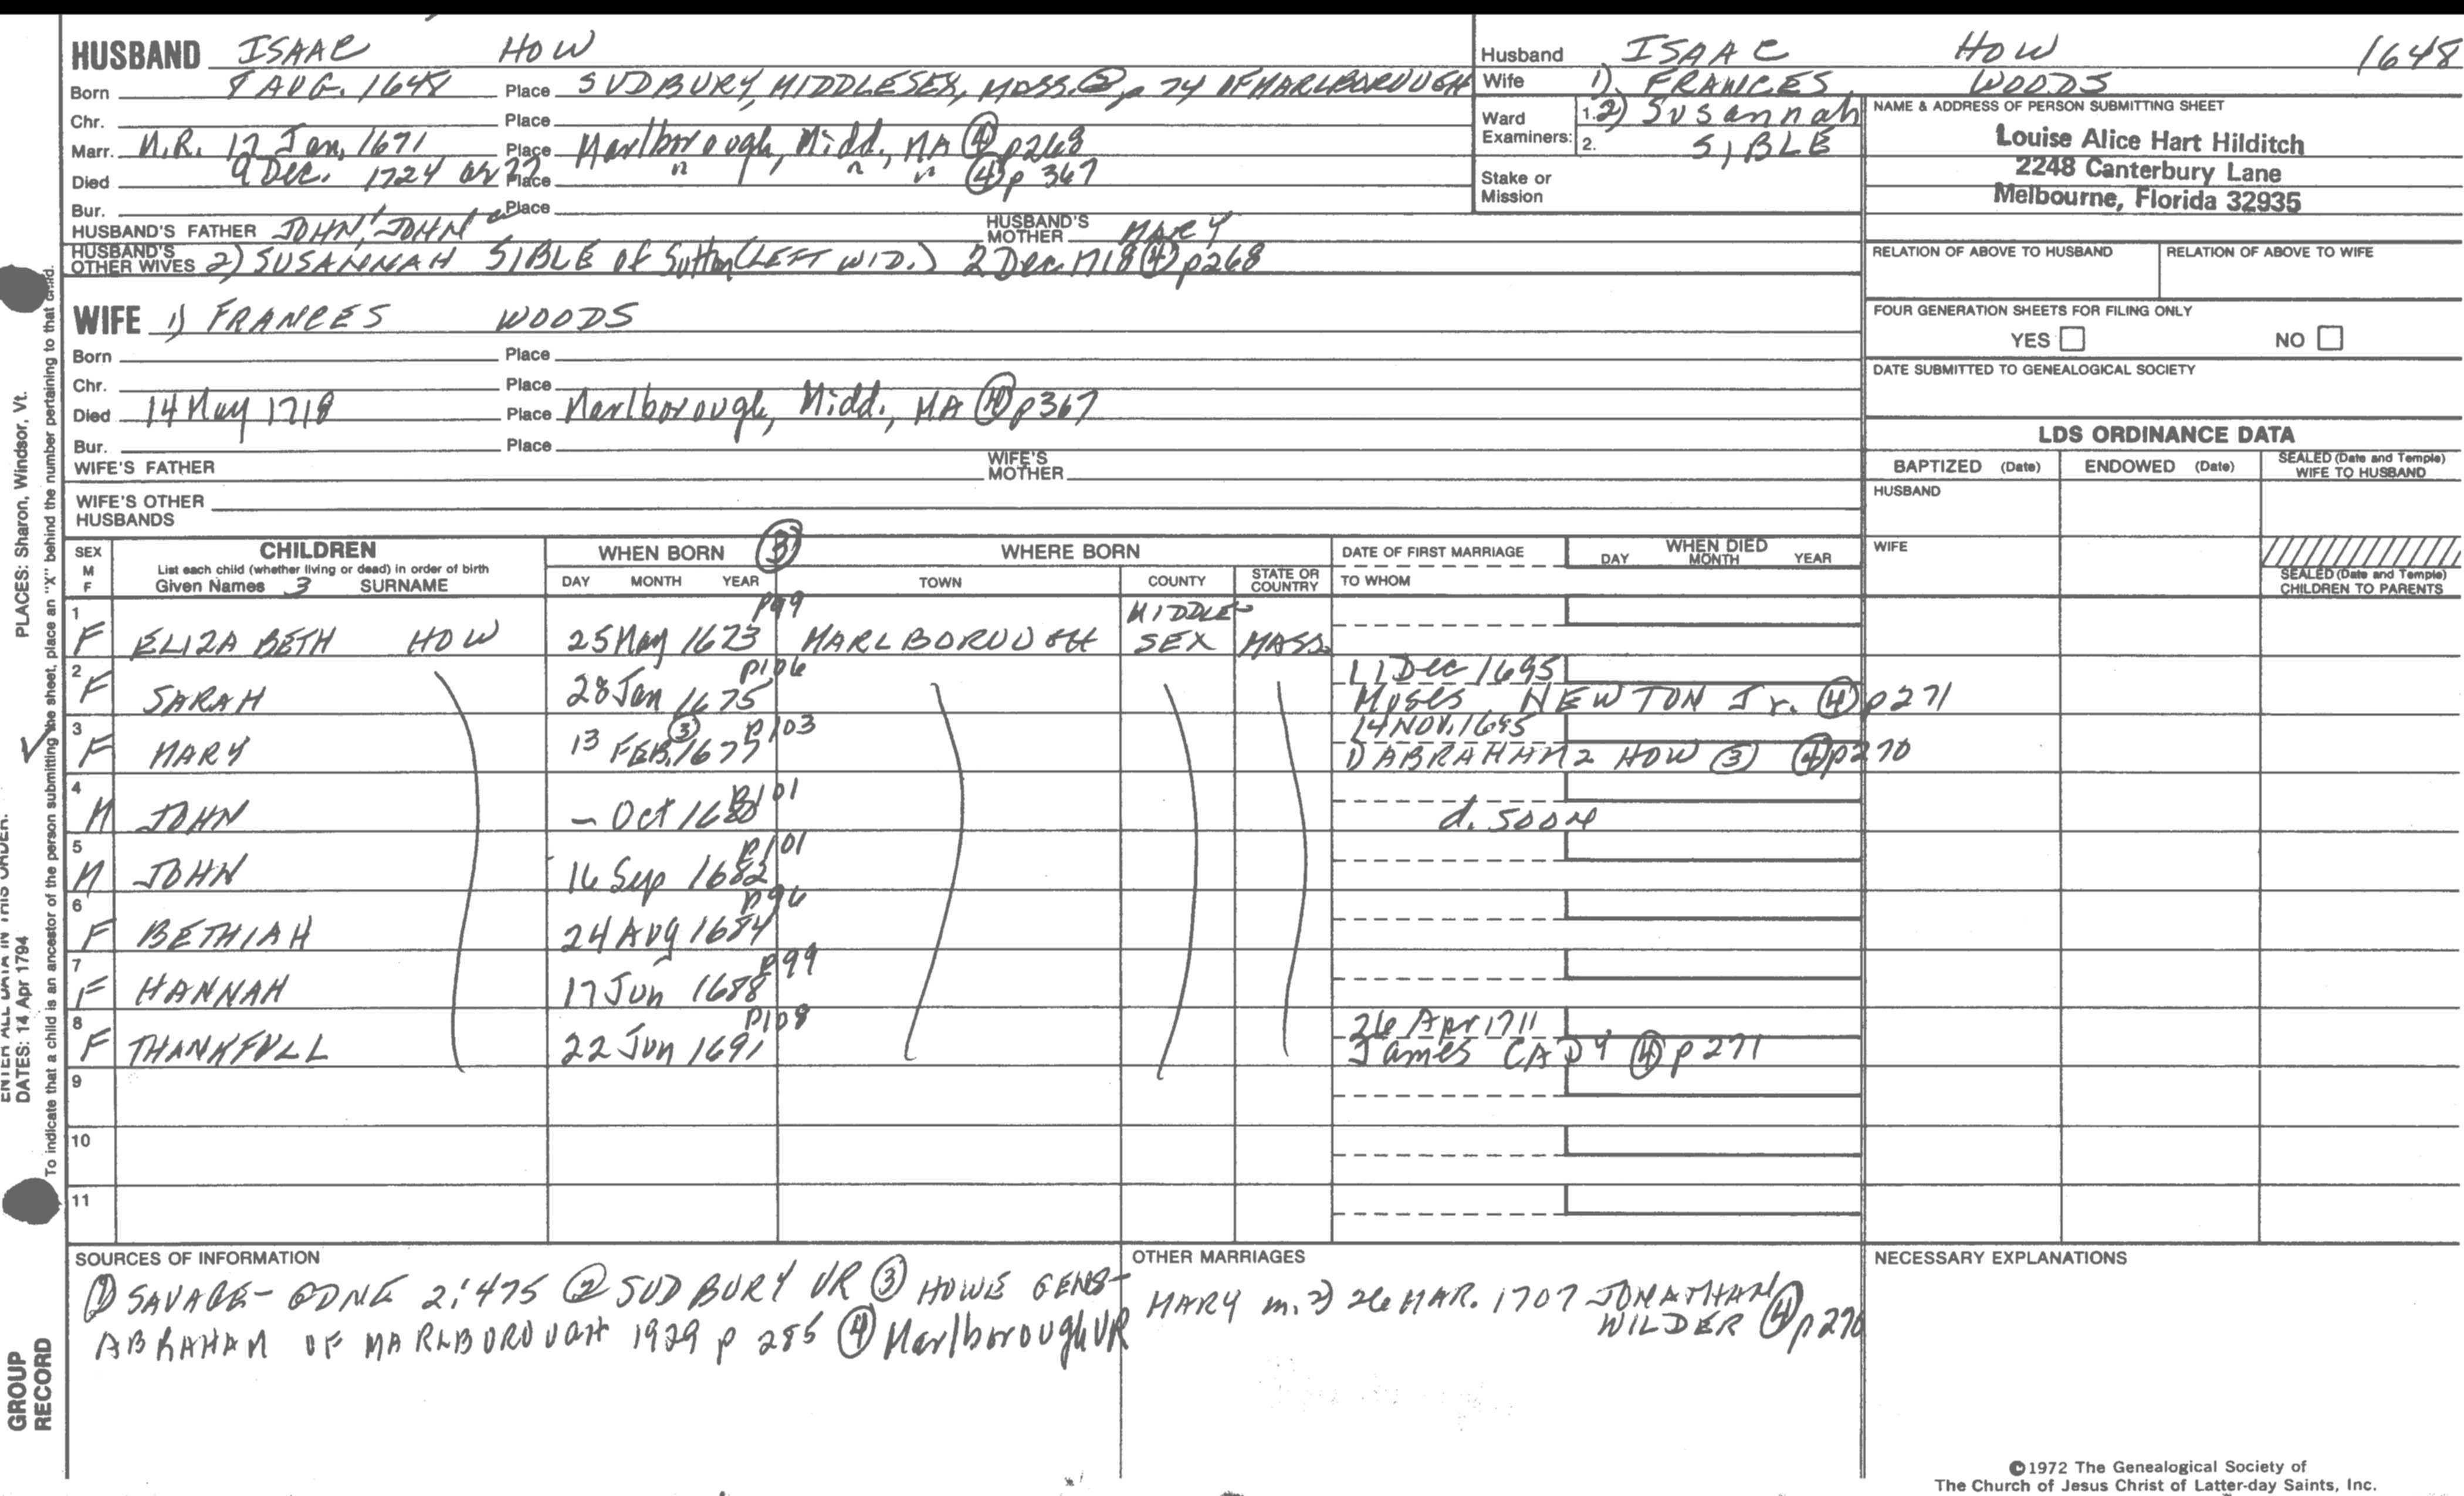 HUSBAND ISAAC HOW
Born 8 AUG. 1648 Place SUDBURY, MIDDLESEX, MASS. ② p 74 OF MARLBOROUGH
Chr. Place
Marr. M.R. 17 Jan. 1671 Place Marlborough, Midd., MA ④ p268
Died 9 Dec. 1724 or 27 Place " " " ④ p 367
Bur. Place
HUSBAND'S FATHER JOHN, JOHN HUSBAND'S MOTHER MARY
HUSBAND'S OTHER WIVES 2) SUSANNAH SIBLE of Sutton (LEFT WID.) 2 Dec. 1718 ④ p268
WIFE 1) FRANCES WOODS
Born Place
Chr. Place
Died 14 May 1718 Place Marlborough, Midd., MA ④ p367
Bur. Place
WIFE'S FATHER WIFE'S MOTHER
WIFE'S OTHER HUSBANDS
Husband ISAAC HOW 1648
Wife 1) FRANCES WOODS
Ward Examiners: 1. 2) Susannah
2. SIBLE
Stake or Mission
NAME & ADDRESS OF PERSON SUBMITTING SHEET
Louise Alice Hart Hilditch
2248 Canterbury Lane
Melbourne, Florida 32935
RELATION OF ABOVE TO HUSBAND RELATION OF ABOVE TO WIFE
FOUR GENERATION SHEETS FOR FILING ONLY
YES NO
DATE SUBMITTED TO GENEALOGICAL SOCIETY
LDS ORDINANCE DATA
BAPTIZED (Date) ENDOWED (Date) SEALED (Date and Temple) WIFE TO HUSBAND
HUSBAND
WIFE
SEALED (Date and Temple) CHILDREN TO PARENTS
SEX M F CHILDREN WHEN BORN ③ WHERE BORN DATE OF FIRST MARRIAGE WHEN DIED
List each child (whether living or dead) in order of birth
Given Names 3 SURNAME DAY MONTH YEAR TOWN COUNTY STATE OR COUNTRY TO WHOM DAY MONTH YEAR
1 F ELIZABETH HOW 25 May 1673 p99 MARLBOROUGH MIDDLESEX MASS.
2 F SARAH 28 Jan 1675 p106 11 Dec 1695
Moses NEWTON Jr. ④ p271
3 F MARY 13 FEB. 1677 ③ p103 14 NOV. 1695
1) ABRAHAM 2 HOW ③ ④ p270
4 M JOHN – Oct 1680 p101 d. soon
5 M JOHN 16 Sep 1682 p101
6 F BETHIAH 24 Aug 1684 p96
7 F HANNAH 17 Jun 1688 p99
8 F THANKFULL 22 Jun 1691 p108 26 Apr 1711
James CADY ④ p271
9
10
11
SOURCES OF INFORMATION
① SAVAGE- GDNE 2:475 ② SUDBURY VR ③ HOWE GENS-
ABRAHAM OF MARLBOROUGH 1929 p 285 ④ Marlborough VR
OTHER MARRIAGES
MARY m. 2) 26 MAR. 1707 JONATHAN
WILDER ④ p270
NECESSARY EXPLANATIONS
©1972 The Genealogical Society of
The Church of Jesus Christ of Latter-day Saints, Inc.
PLACES: Sharon, Windsor, Vt.
ENTER ALL DATA IN THIS ORDER:
DATES: 14 Apr 1794
To indicate that a child is an ancestor of the person submitting the sheet, place an "X" behind the number pertaining to that child.
GROUP
RECORD